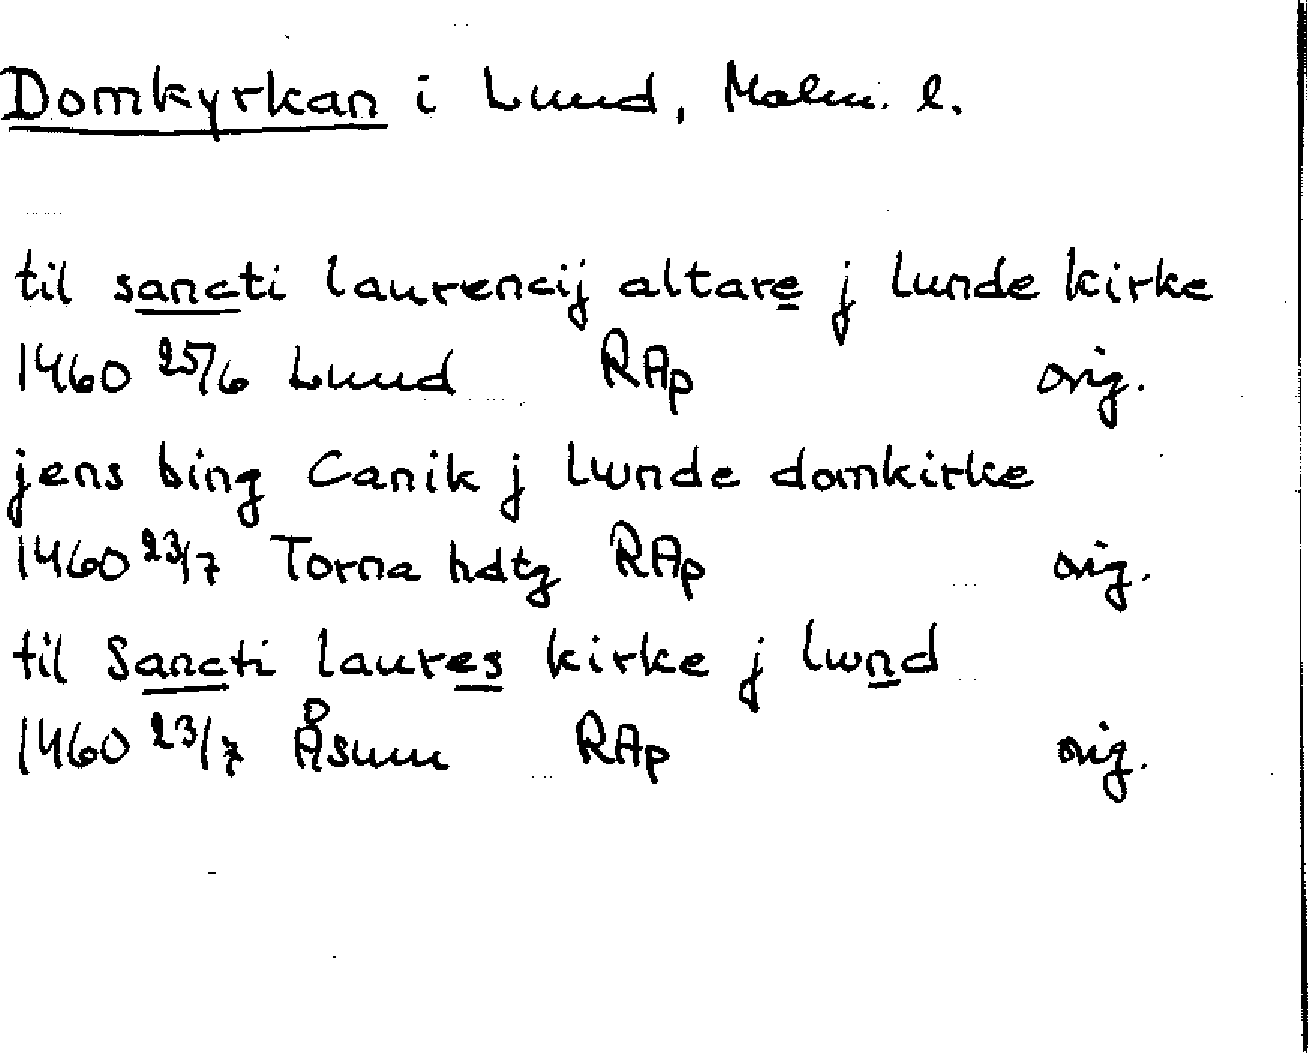 Domkyrkan i Lund, Malm. l.
til sancti laurencij altare j lunde kirke
1460 25/6 Lund RAp orig.
jens bing Canik j lwnde domkirke
1460 23/7 Torna hdtg RAp orig.
til Sancti laures kirke j lwnd
1460 23/7 Åsum RAp orig.